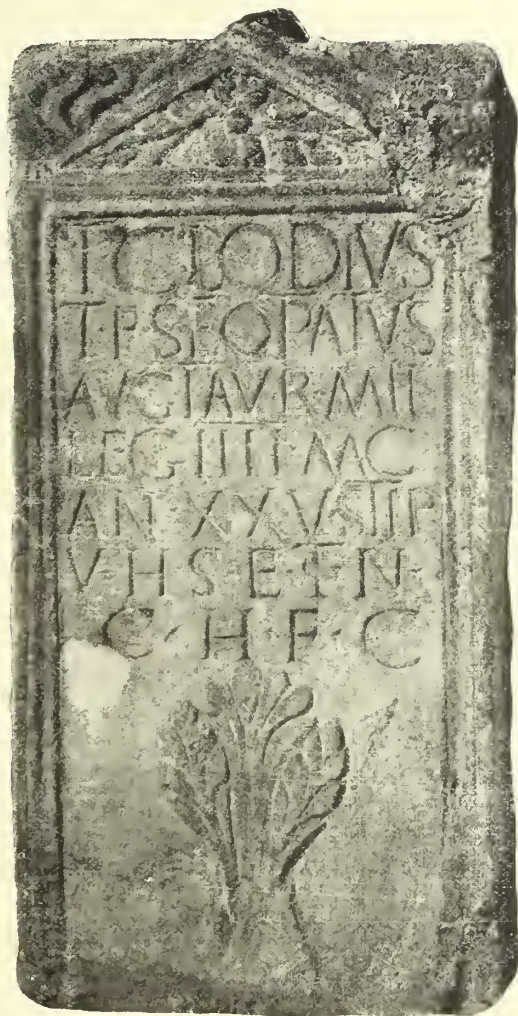 T CLODIVS
T·F·SE OPATVS
AVG TAVR·MIL
LEG·IIII·MAC
AN XXV STIP
V·H·S·E·T·N·
C·H·F·C